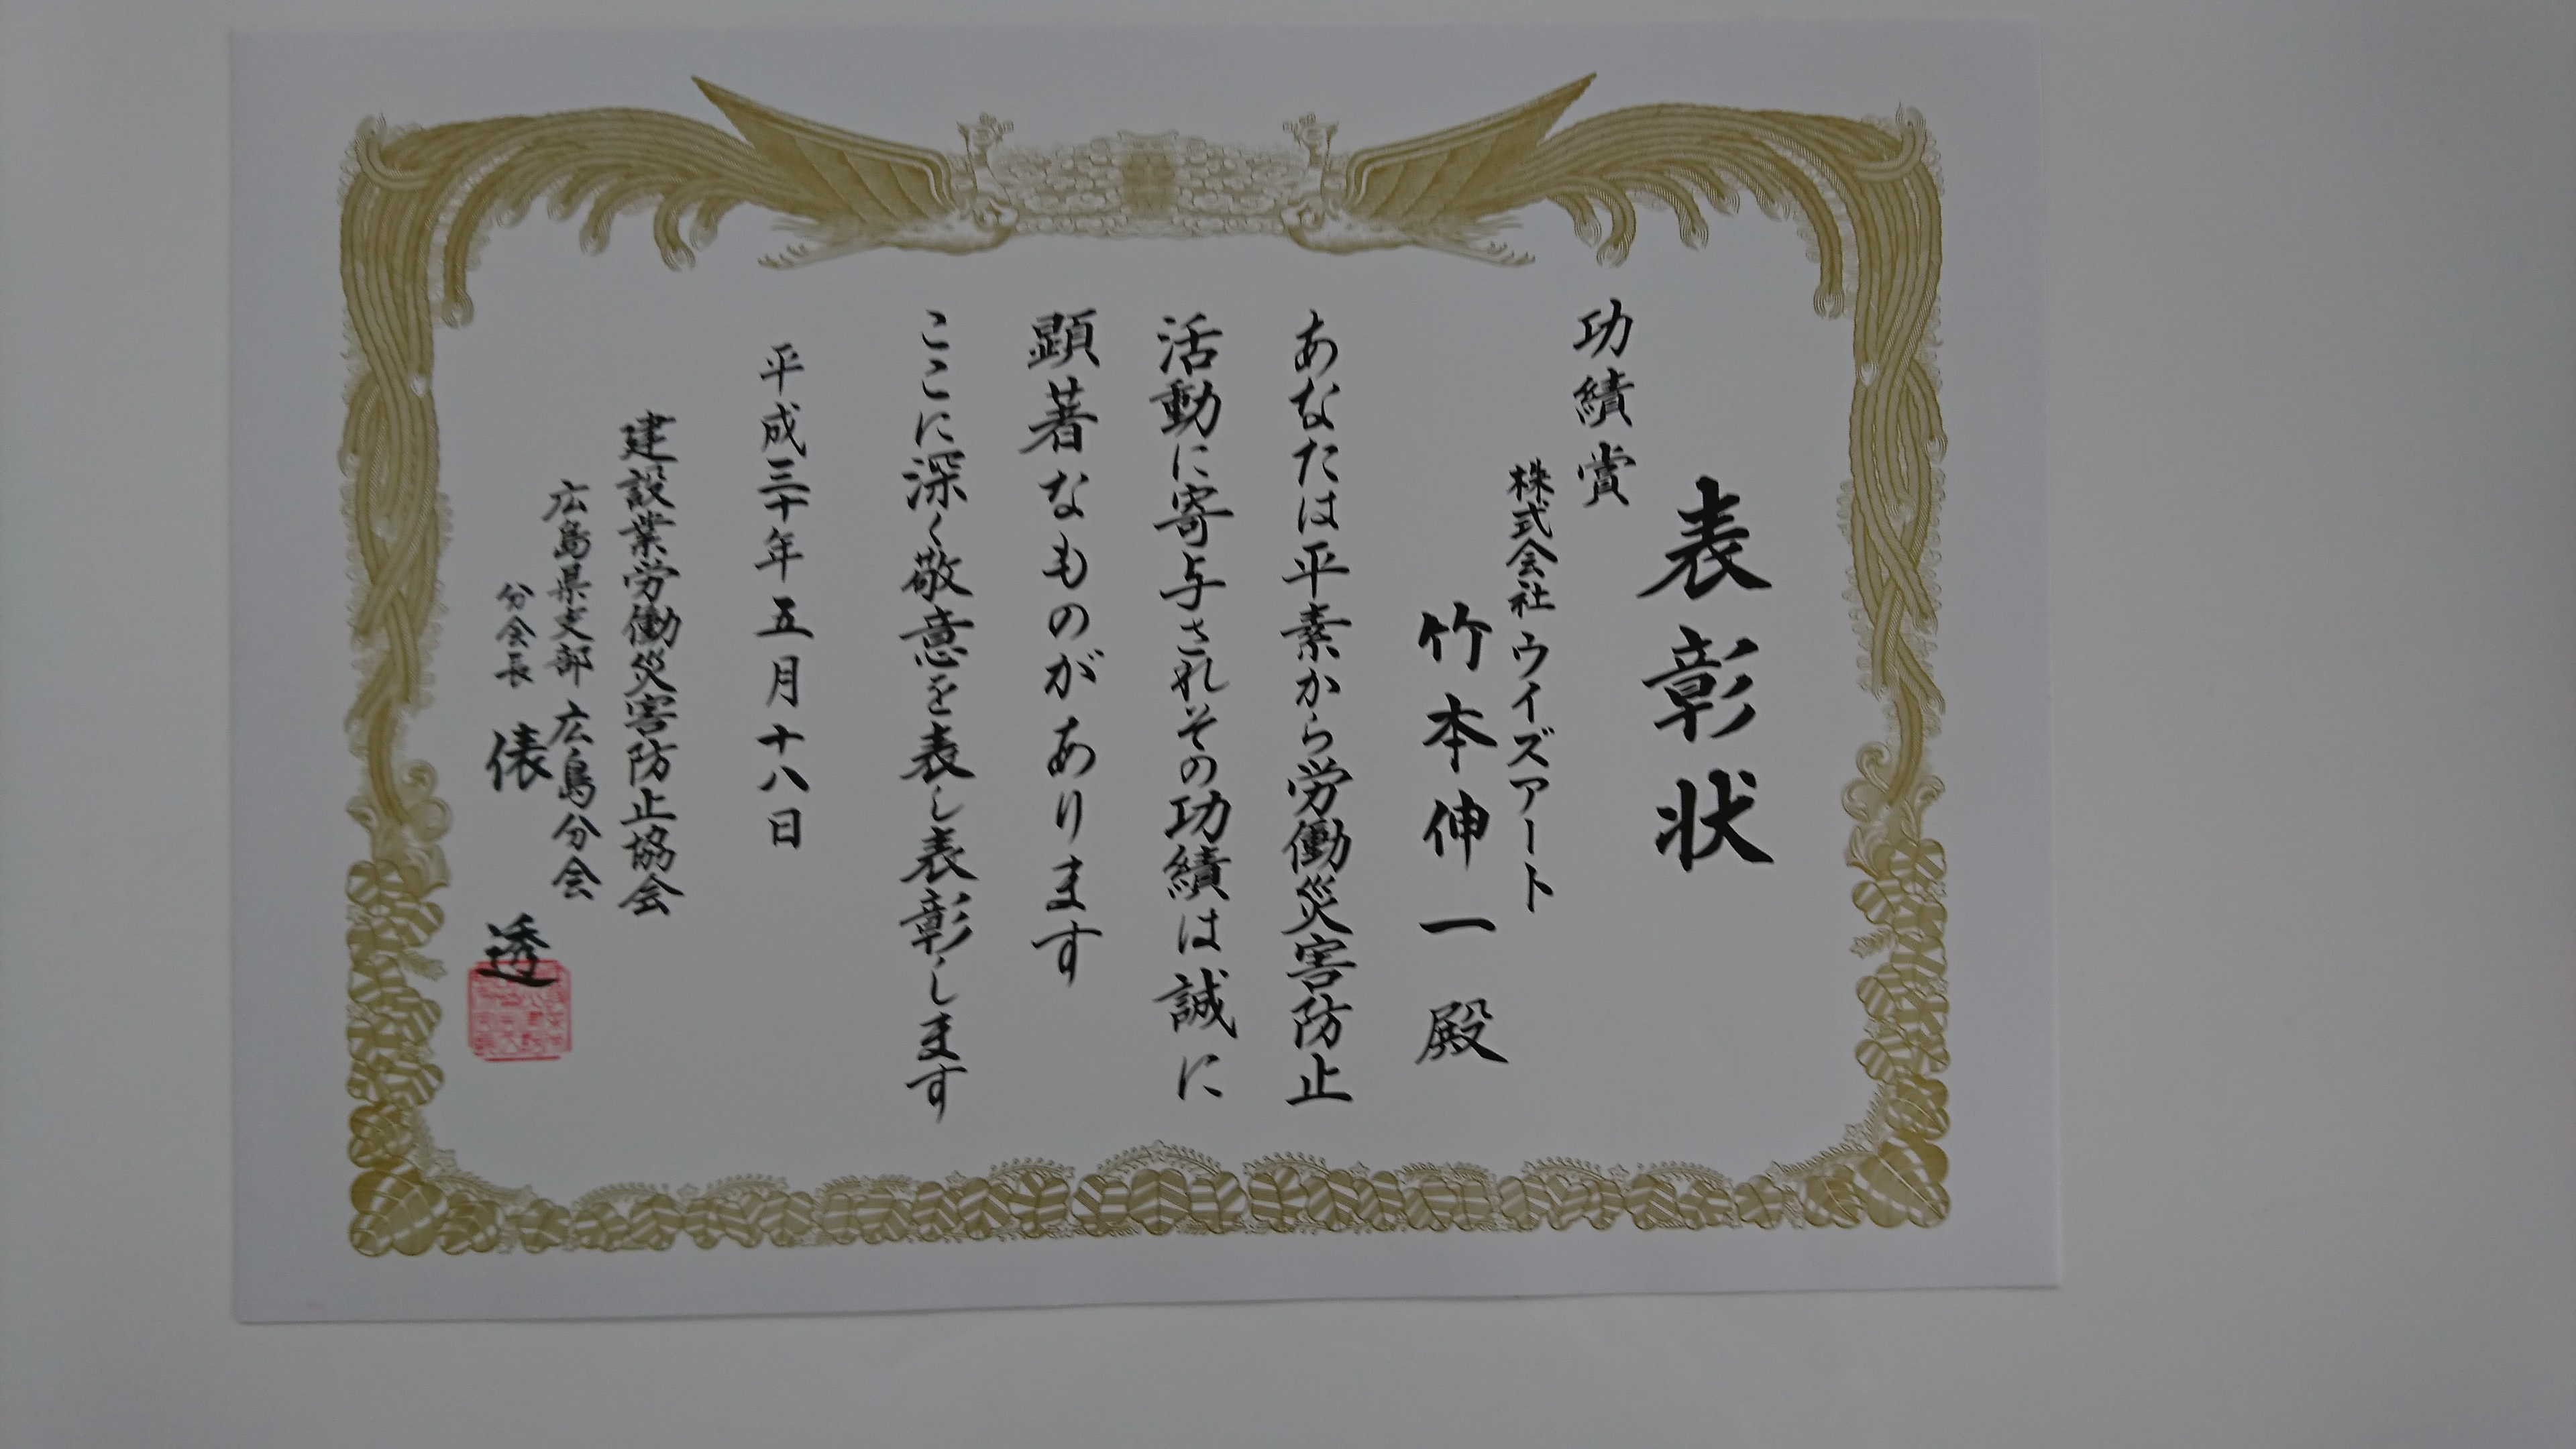 表彰状
功績賞
株式会社ウイズアート
竹本伸一殿
あなたは平素から労働災害防止
活動に寄与されその功績は誠に
顕著なものがあります
ここに深く敬意を表し表彰します
平成三十年五月十八日
建設業労働災害防止協会
広島県支部広島分会
分会長 俵 透